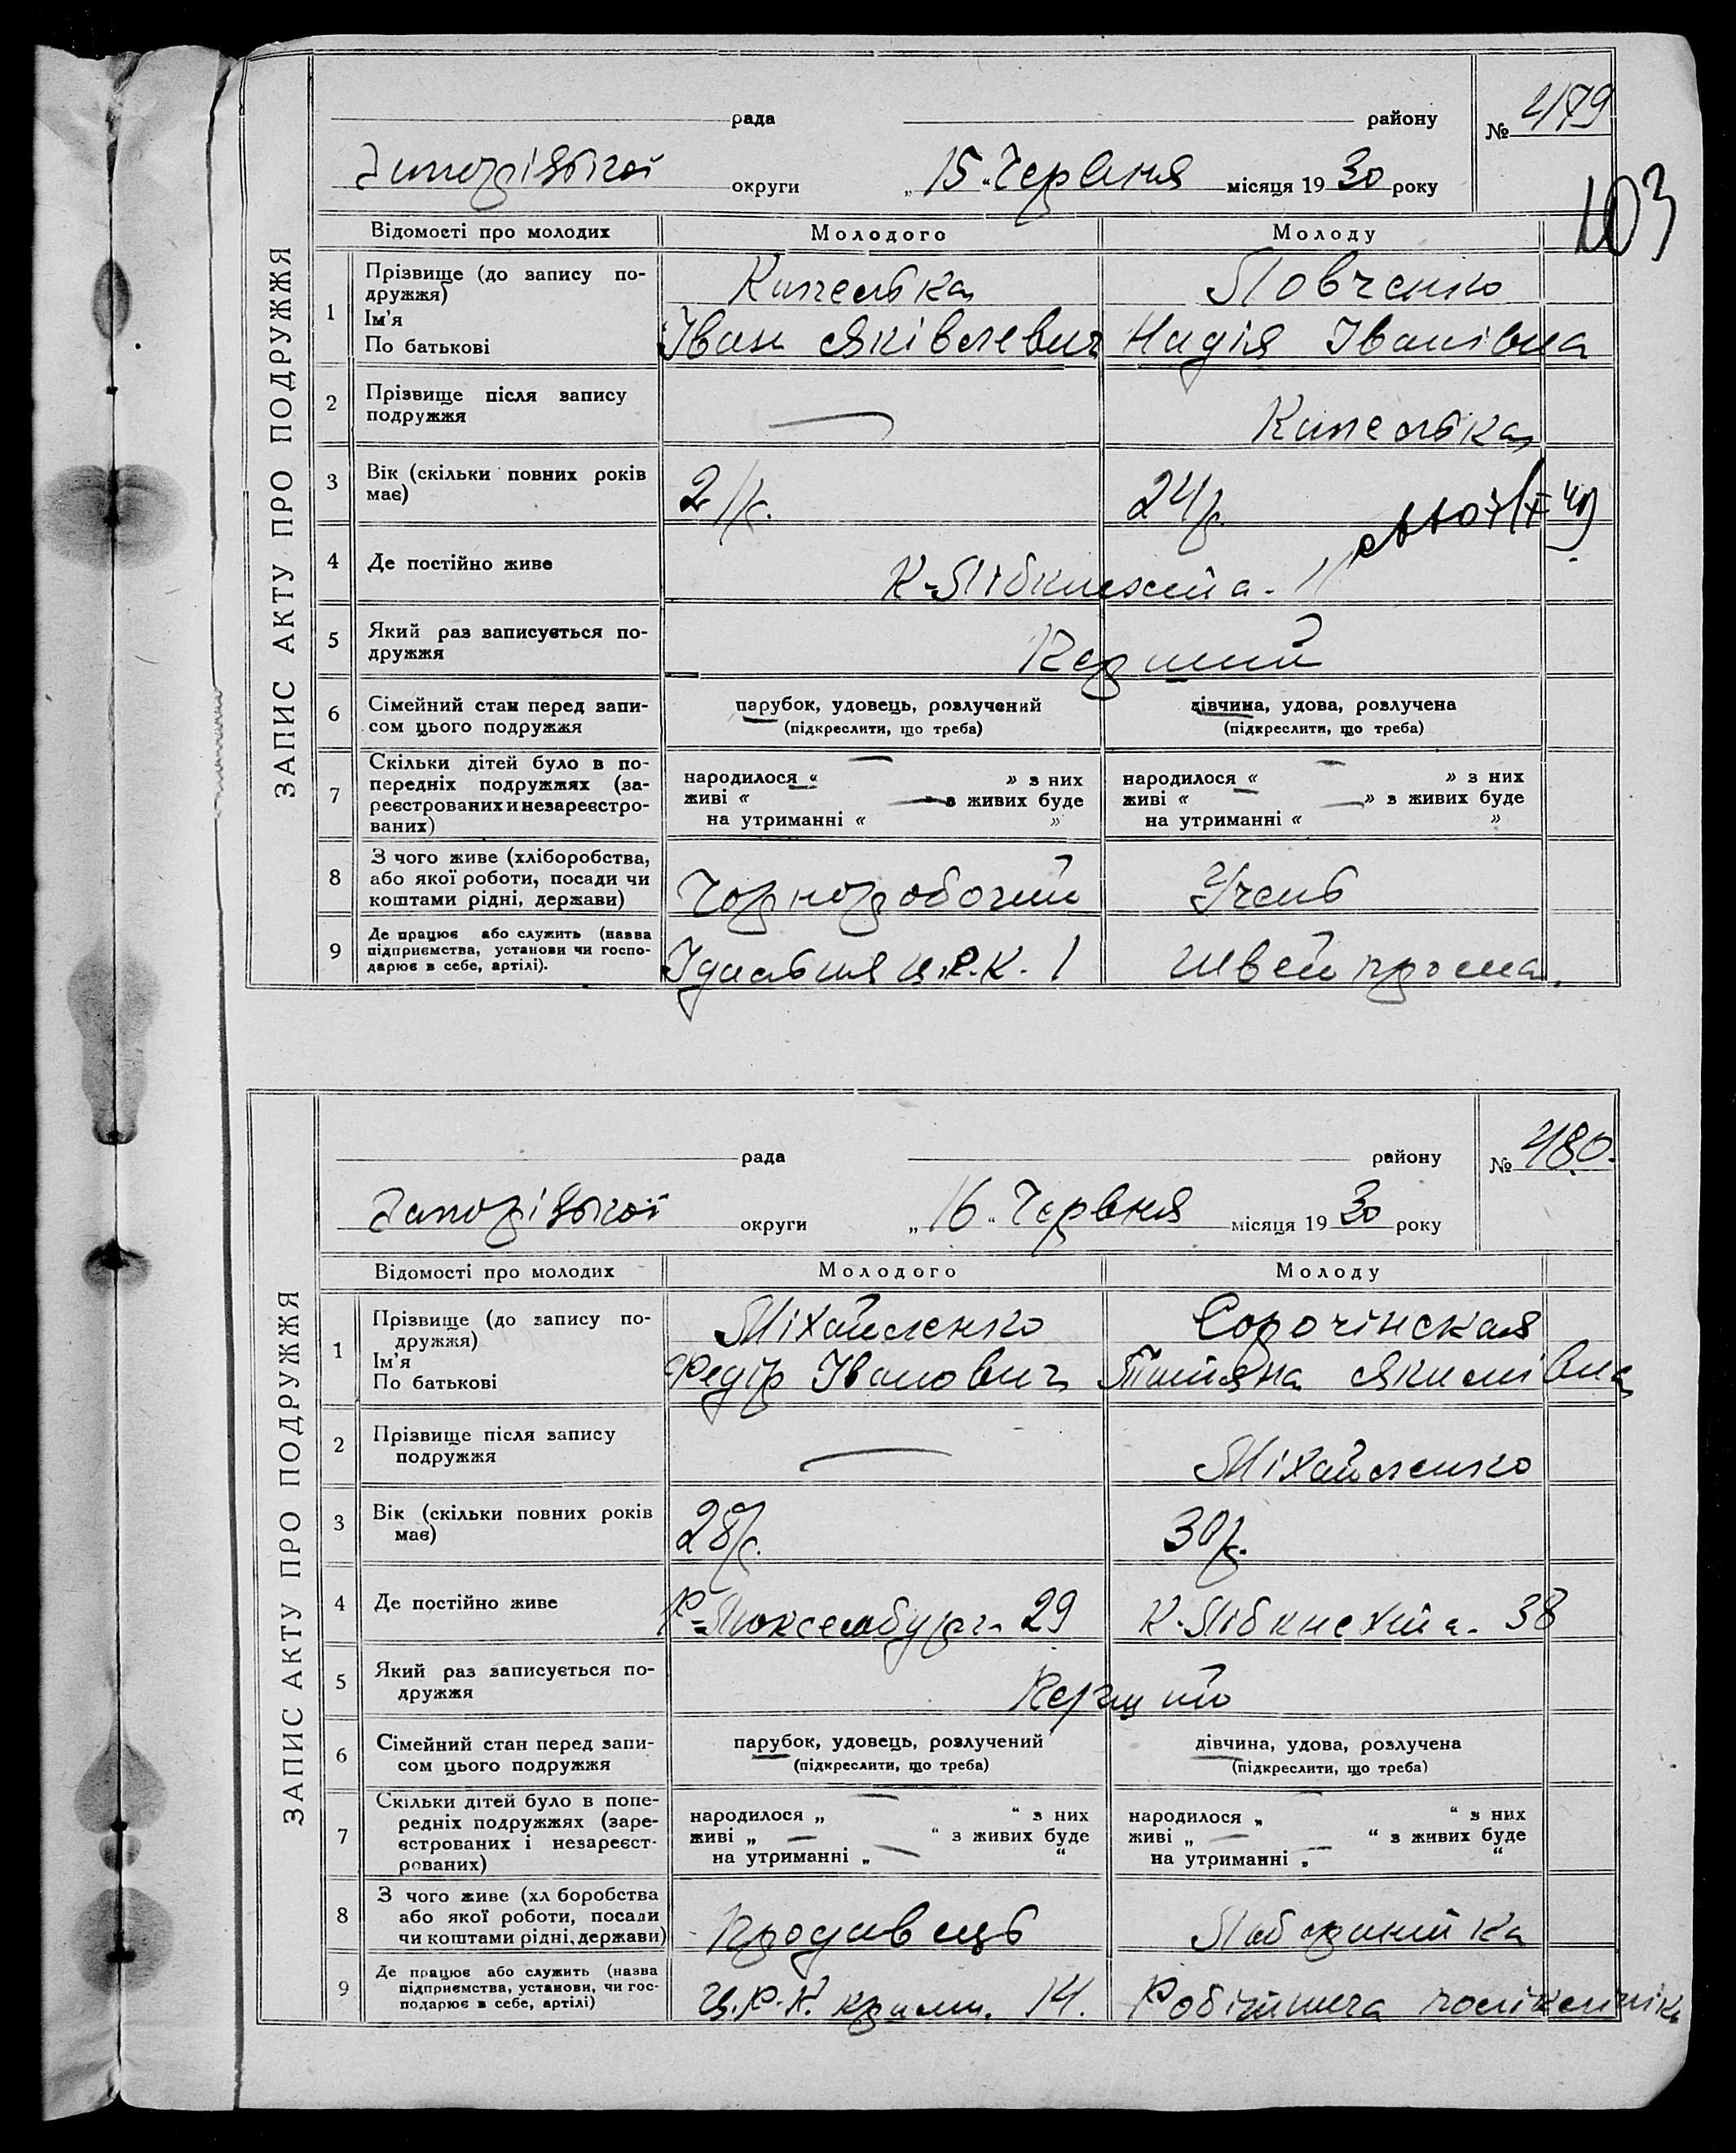 ЗАПИС АКТУ ПРО ПОДРУЖЖЯ
рада району № 479
Запорізької округи „15„ Червня місяця 1930 року
103
Відомості про молодих Молодого Молоду
1 Прізвище (до запису по-
дружжя)
Ім'я
По батькові
Іван Яківлевич Надія Іванівна
2 Прізвище після запису
подружжя
—
3 Вік (скільки повних років
має)
24р.
4 Де постійно живе
К-Лібкнехта-
5 Який раз записується по-
дружжя
Перший
6 Сімейний стан перед запи-
сом цього подружжя
парубок, удовець, розлучений
(підкреслити, що треба)
дівчина, удова, розлучена
(підкреслити, що треба)
7 Скільки дітей було в по-
передніх подружжях (за-
реєстрованих и незареєстро-
ваних)
народилося « » з них
живі « » з живих буде
на утриманні « »
народилося « » з них
живі « » з живих буде
на утриманні « »
8 З чого живе (хліборобства,
або якої роботи, посади чи
коштами рідні, держави)
Чорноробочий Учень
9 Де працює або служить (назва
підприємства, установи чи госпо-
дарює в себе, артілі).
Їдальня ц.р.к. 1 Швейпрома.
ЗАПИС АКТУ ПРО ПОДРУЖЖЯ
рада району № 480.
Запорізької округи „16„ Червня місяця 1930 року
Відомості про молодих Молодого Молоду
1 Прізвище (до запису по-
дружжя)
Ім'я
По батькові
Міхайленко Сорочінская
Федір Іванович Татяна Якимівна
2 Прізвище після запису
подружжя
— Міхайленко
3 Вік (скільки повних років
має)
28р. 30р.
4 Де постійно живе
Р-Люксембург- 29 К-Лібкнехта- 38
5 Який раз записується по-
дружжя
Перший
6 Сімейний стан перед запи-
сом цього подружжя
парубок, удовець, розлучений
(підкреслити, що треба)
дівчина, удова, розлучена
(підкреслити, що треба)
7 Скільки дітей було в попе-
редніх подружжях (заре-
єстрованих і незареєст-
рованих)
народилося „ “ з них
живі „ — “ з живих буде
на утриманні „ “
народилося „ “ з них
живі „ — “ з живих буде
на утриманні „ “
8 З чого живе (хл боробства
або якої роботи, посади
чи коштами рідні, держави)
Продавець Лаборантка
9 Де працює або служить (назва
підприємства, установи, чи гос-
подарює в себе, артілі)
Ц.Р.К. крамн. 14. Робітнича поліклінік